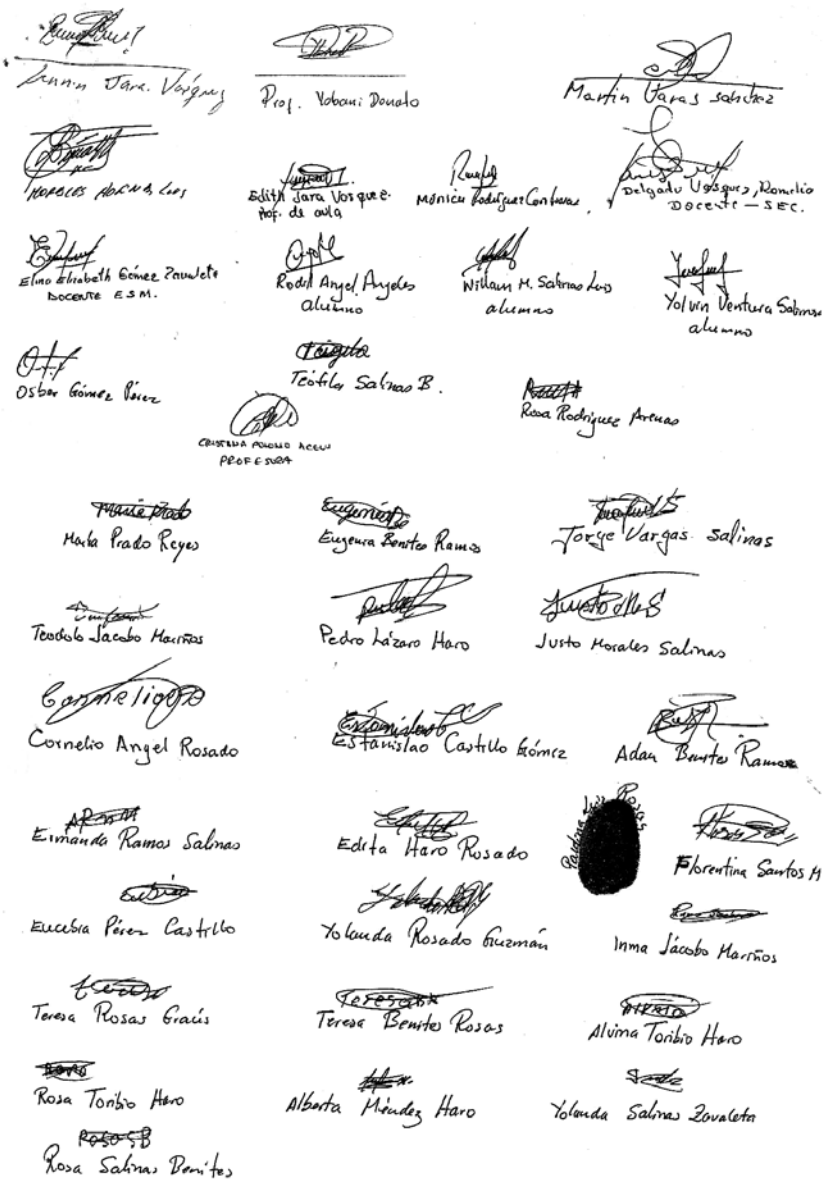 Jara. Vásquez
Prof. Yobani Donato
Martin Varas Sanchez
Edith Jara Vasquez.
Prof. de aula
Mónica Rodríguez Contreras
Delgado Vásquez, Romelio
DOCENTE - SEC.
Elizabeth Gómez Zavaleta
DOCENTE E S M.
Rodil Angel Angeles
alumno
William M. Salinas Luis
alumno
Yolvin Ventura Salinas
alumno
Osber Gómez Pérez
Teófila Salinas B.
Rosa Rodríguez Arenas
PROFESORA
Prado Reyes
Eugenia Benites Ramos
Jorge Vargas Salinas
Teodolo Jacobo Mariños
Pedro Lázaro Haro
Justo Morales Salinas
Cornelio Angel Rosado
Estanislao Castillo Gómez
Adan Benites Ramos
Ermanda Ramos Salinas
Edita Haro Rosado
Rosas
Florentina Santos M
Eucebia Pérez Castillo
Yolanda Rosado Guzmán
Inma Jácobo Mariños
Teresa Rosas
Teresa Benites Rosas
Alvina Toribio Haro
Rosa Toribio Haro
Alberta Méndez Haro
Yolanda Salinas Zavaleta
Rosa Salinas Benites